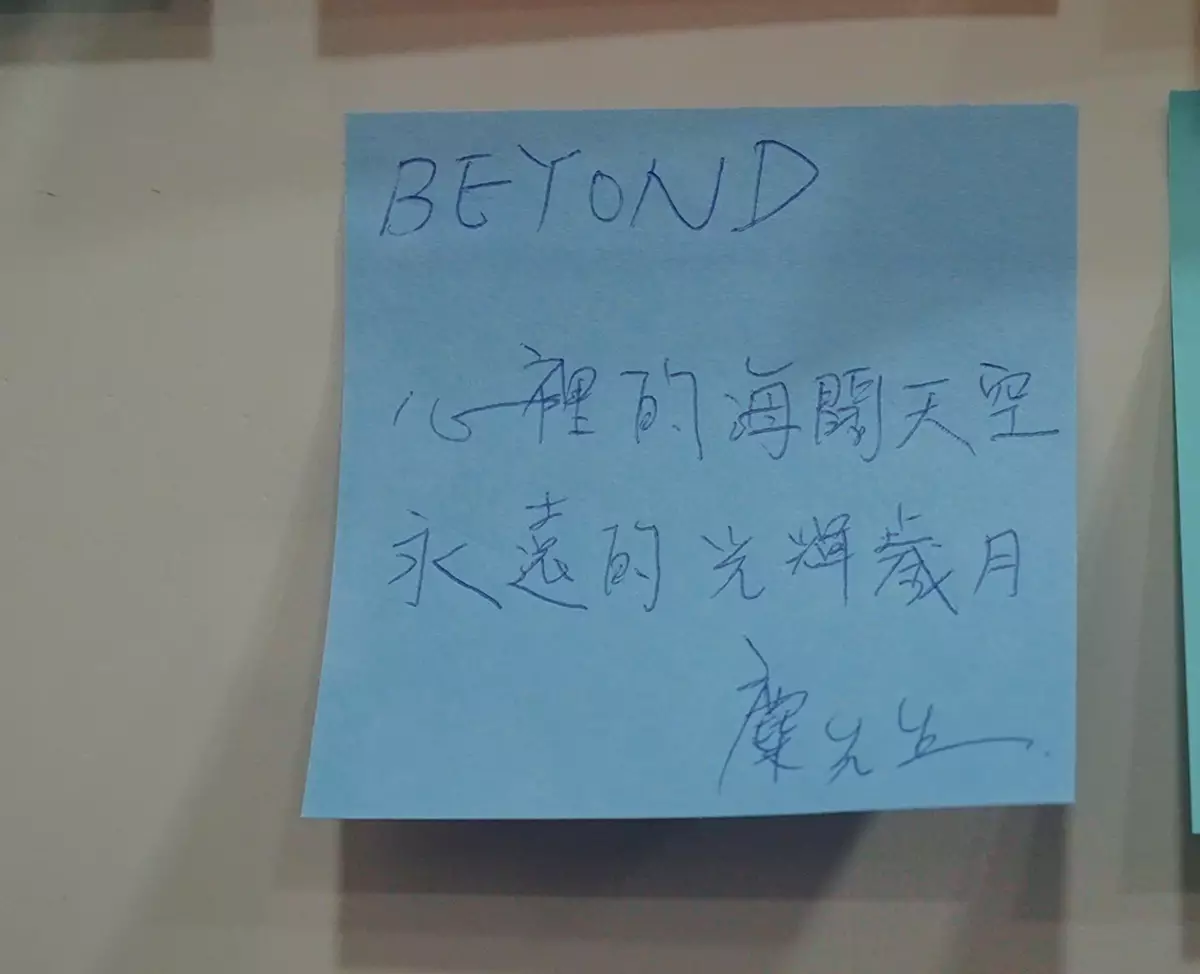 BEYOND
心裡的海闊天空
永遠的光輝歲月
先生